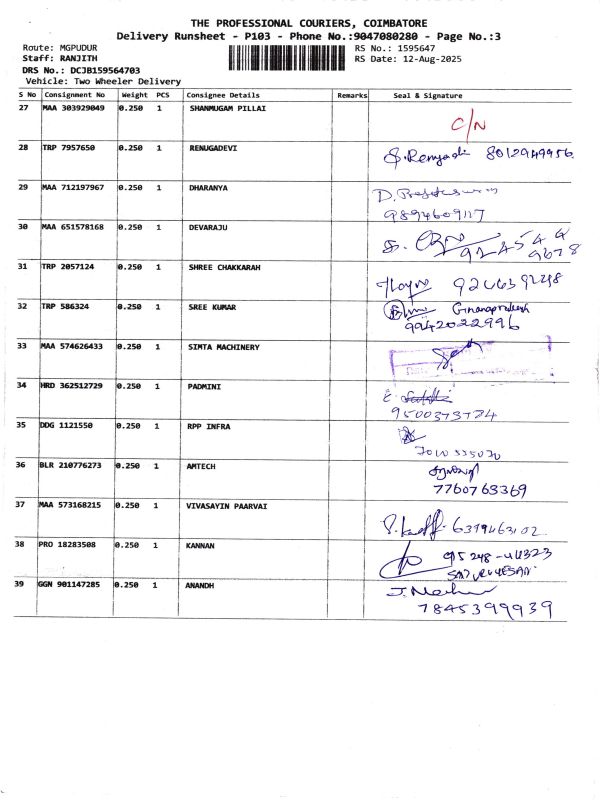 THE PROFESSIONAL COURIERS, COIMBATORE
Delivery Runsheet - P103 - Phone No.:9047080280 - Page No.:3
Route: MGPUDUR RS No.: 1595647
Staff: RANJITH RS Date: 12-Aug-2025
DRS No.: DCJB159564703
Vehicle: Two Wheeler Delivery
S No Consignment No Weight PCS Consignee Details Remarks Seal & Signature
27 MAA 303929049 0.250 1 SHANMUGAM PILLAI
C/N
28 TRP 7957650 0.250 1 RENUGADEVI
8012949956
29 MAA 712197967 0.250 1 DHARANYA
9894609117
30 MAA 651578168 0.250 1 DEVARAJU
31 TRP 2057124 0.250 1 SHREE CHAKKARAH
32 TRP 586324 0.250 1 SREE KUMAR
Gnanaprakash
9942022996
33 MAA 574626433 0.250 1 SIMTA MACHINERY
34 HRD 362512729 0.250 1 PADMINI
35 DDG 1121550 0.250 1 RPP INFRA
36 BLR 210776273 0.250 1 AMTECH
7760763369
37 MAA 573168215 0.250 1 VIVASAYIN PAARVAI
38 PRO 18283508 0.250 1 KANNAN
39 GGN 901147285 0.250 1 ANANDH
7845399939